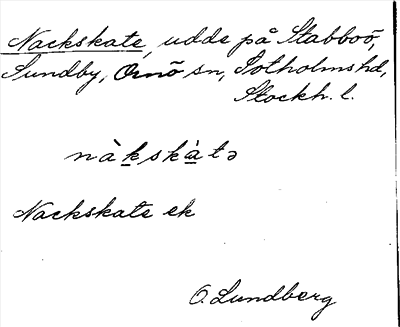 Nackskate, udde på Stabboö,
Sundby, Ornö sn, Sotholms hd,
Stockh. l.
nàkskàtə
Nackskate ek
O. Lundberg